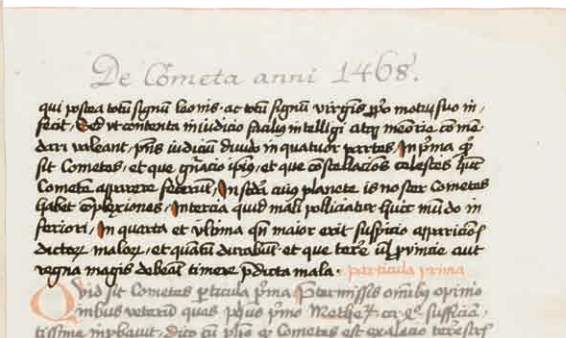 De Cometa anni 1468.
qui postea totū signū leonis. ac totū signū virgīs ꝓpo motu suo in/
fecit. Sed vt contenta in iudicio faciliꝰ intelligi atqꝫ meōrie cōmē-
dari valeant. pn̄s iudiciū diuido in quatuor partes. In pͥma qͥd
sit Cometes, et que gn̄acio ipiꝰ, et que cōstellacio celestes hūc
Cometā apparere fecerūt, In scd̄a cuiꝰ planete is noster Cometes
habet cōplexiones, In tercia quid mali polliciatur huic mūdo in
feriori, In quarta et vltima qn̄ maior erit suspicio apparicōs
dictoꝝ maloꝝ, et quātū durabūt et que terre ul̄ ꝓuincie aut
regna magis debeāt timere p̄dicta mala. particula prima
Qvid sit Cometes ꝑticula pͥma Ptermissis omībꝰ opinio
nibus veterū quas phꝰs pͥmo Metheoꝝ
tissime Dico cū pho qͥ Cometes est exalacio terrestrͥ